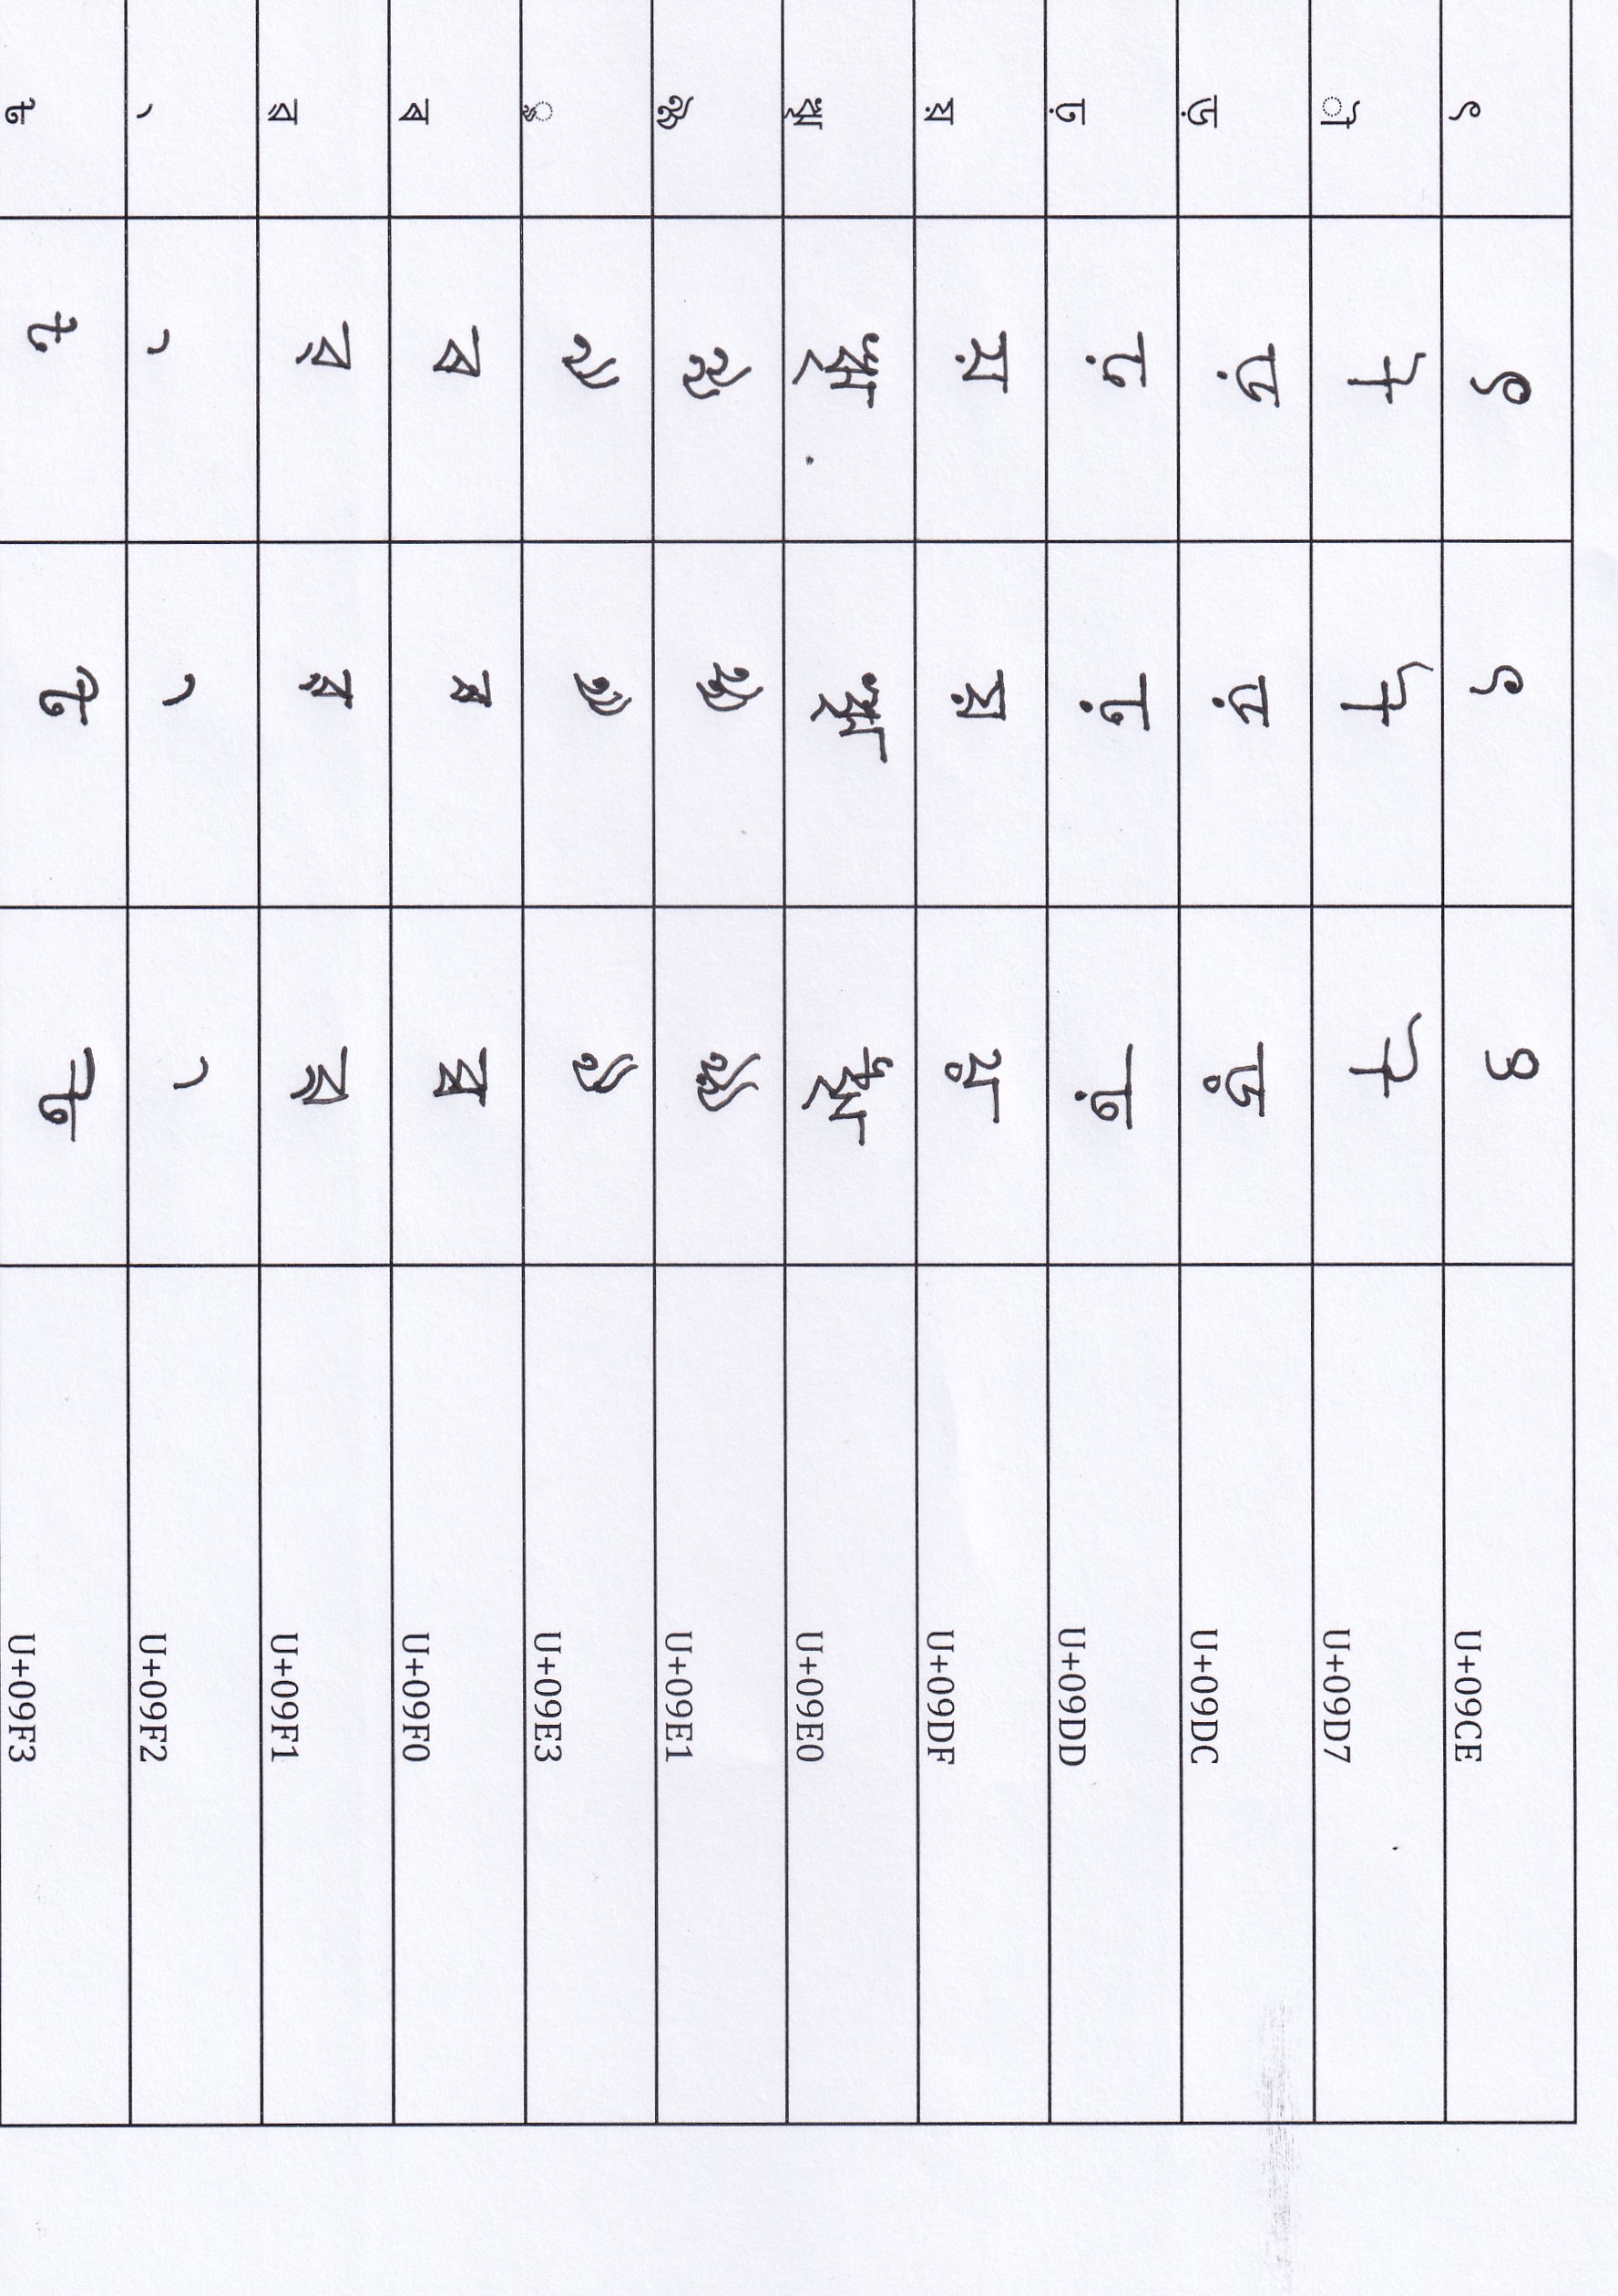 ৎ ৎ ৎ ৎ U+09CE
ৗ ৗ ৗ ৗ U+09D7
ড় ড় ড় ড় U+09DC
ঢ় ঢ় ঢ় ঢ় U+09DD
য় য় য় য় U+09DF
ৠ ৠ ৠ ৠ U+09E0
ৡ ৡ ৡ ৡ U+09E1
ৣ ৣ ৣ ৣ U+09E3
ৰ ৰ ৰ ৰ U+09F0
ৱ ৱ ৱ ৱ U+09F1
৲ ৲ ৲ ৲ U+09F2
৳ ৳ ৳ ৳ U+09F3